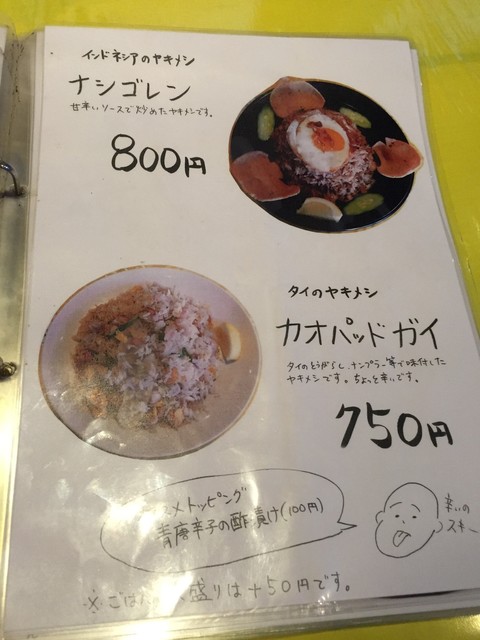 インドネシアのヤキメシ
ナシゴレン
甘辛いソースで炒めたヤキメシです。
800円
タイのヤキメシ
カオパッドガイ
タイのとうがらし、ナンプラー等で味付した
ヤキメシです。ちょっと辛いです。
750円
トッピング
青唐辛子の酢漬け(100円)
辛いの
スキー
※ごはん 盛りは+50円です。